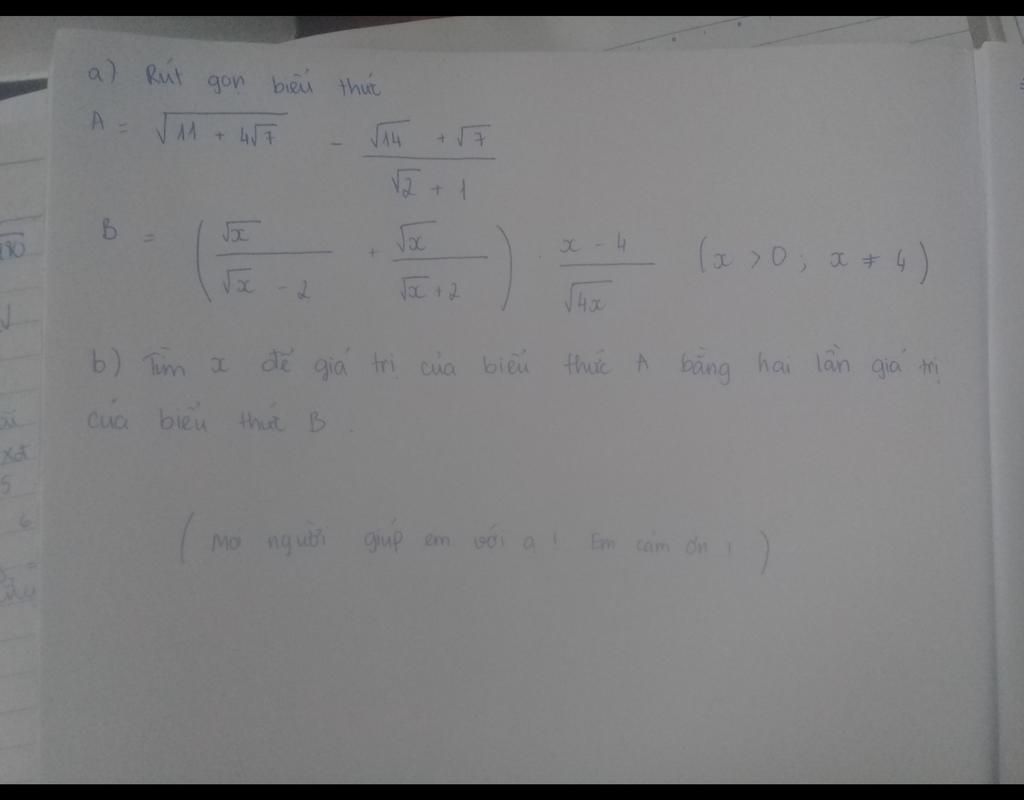 a) Rút gọn biểu thức
A = √(11 + 4√7) - (√14 + √7)/(√2 + 1)
B = (√x/(√x - 2) + √x/(√x + 2)) . (x - 4)/√(4x) (x > 0 ; x ≠ 4)
b) Tìm x để giá trị của biểu thức A bằng hai lần giá trị
của biểu thức B .
( Mọi người giúp em với ạ ! Em cảm ơn ! )